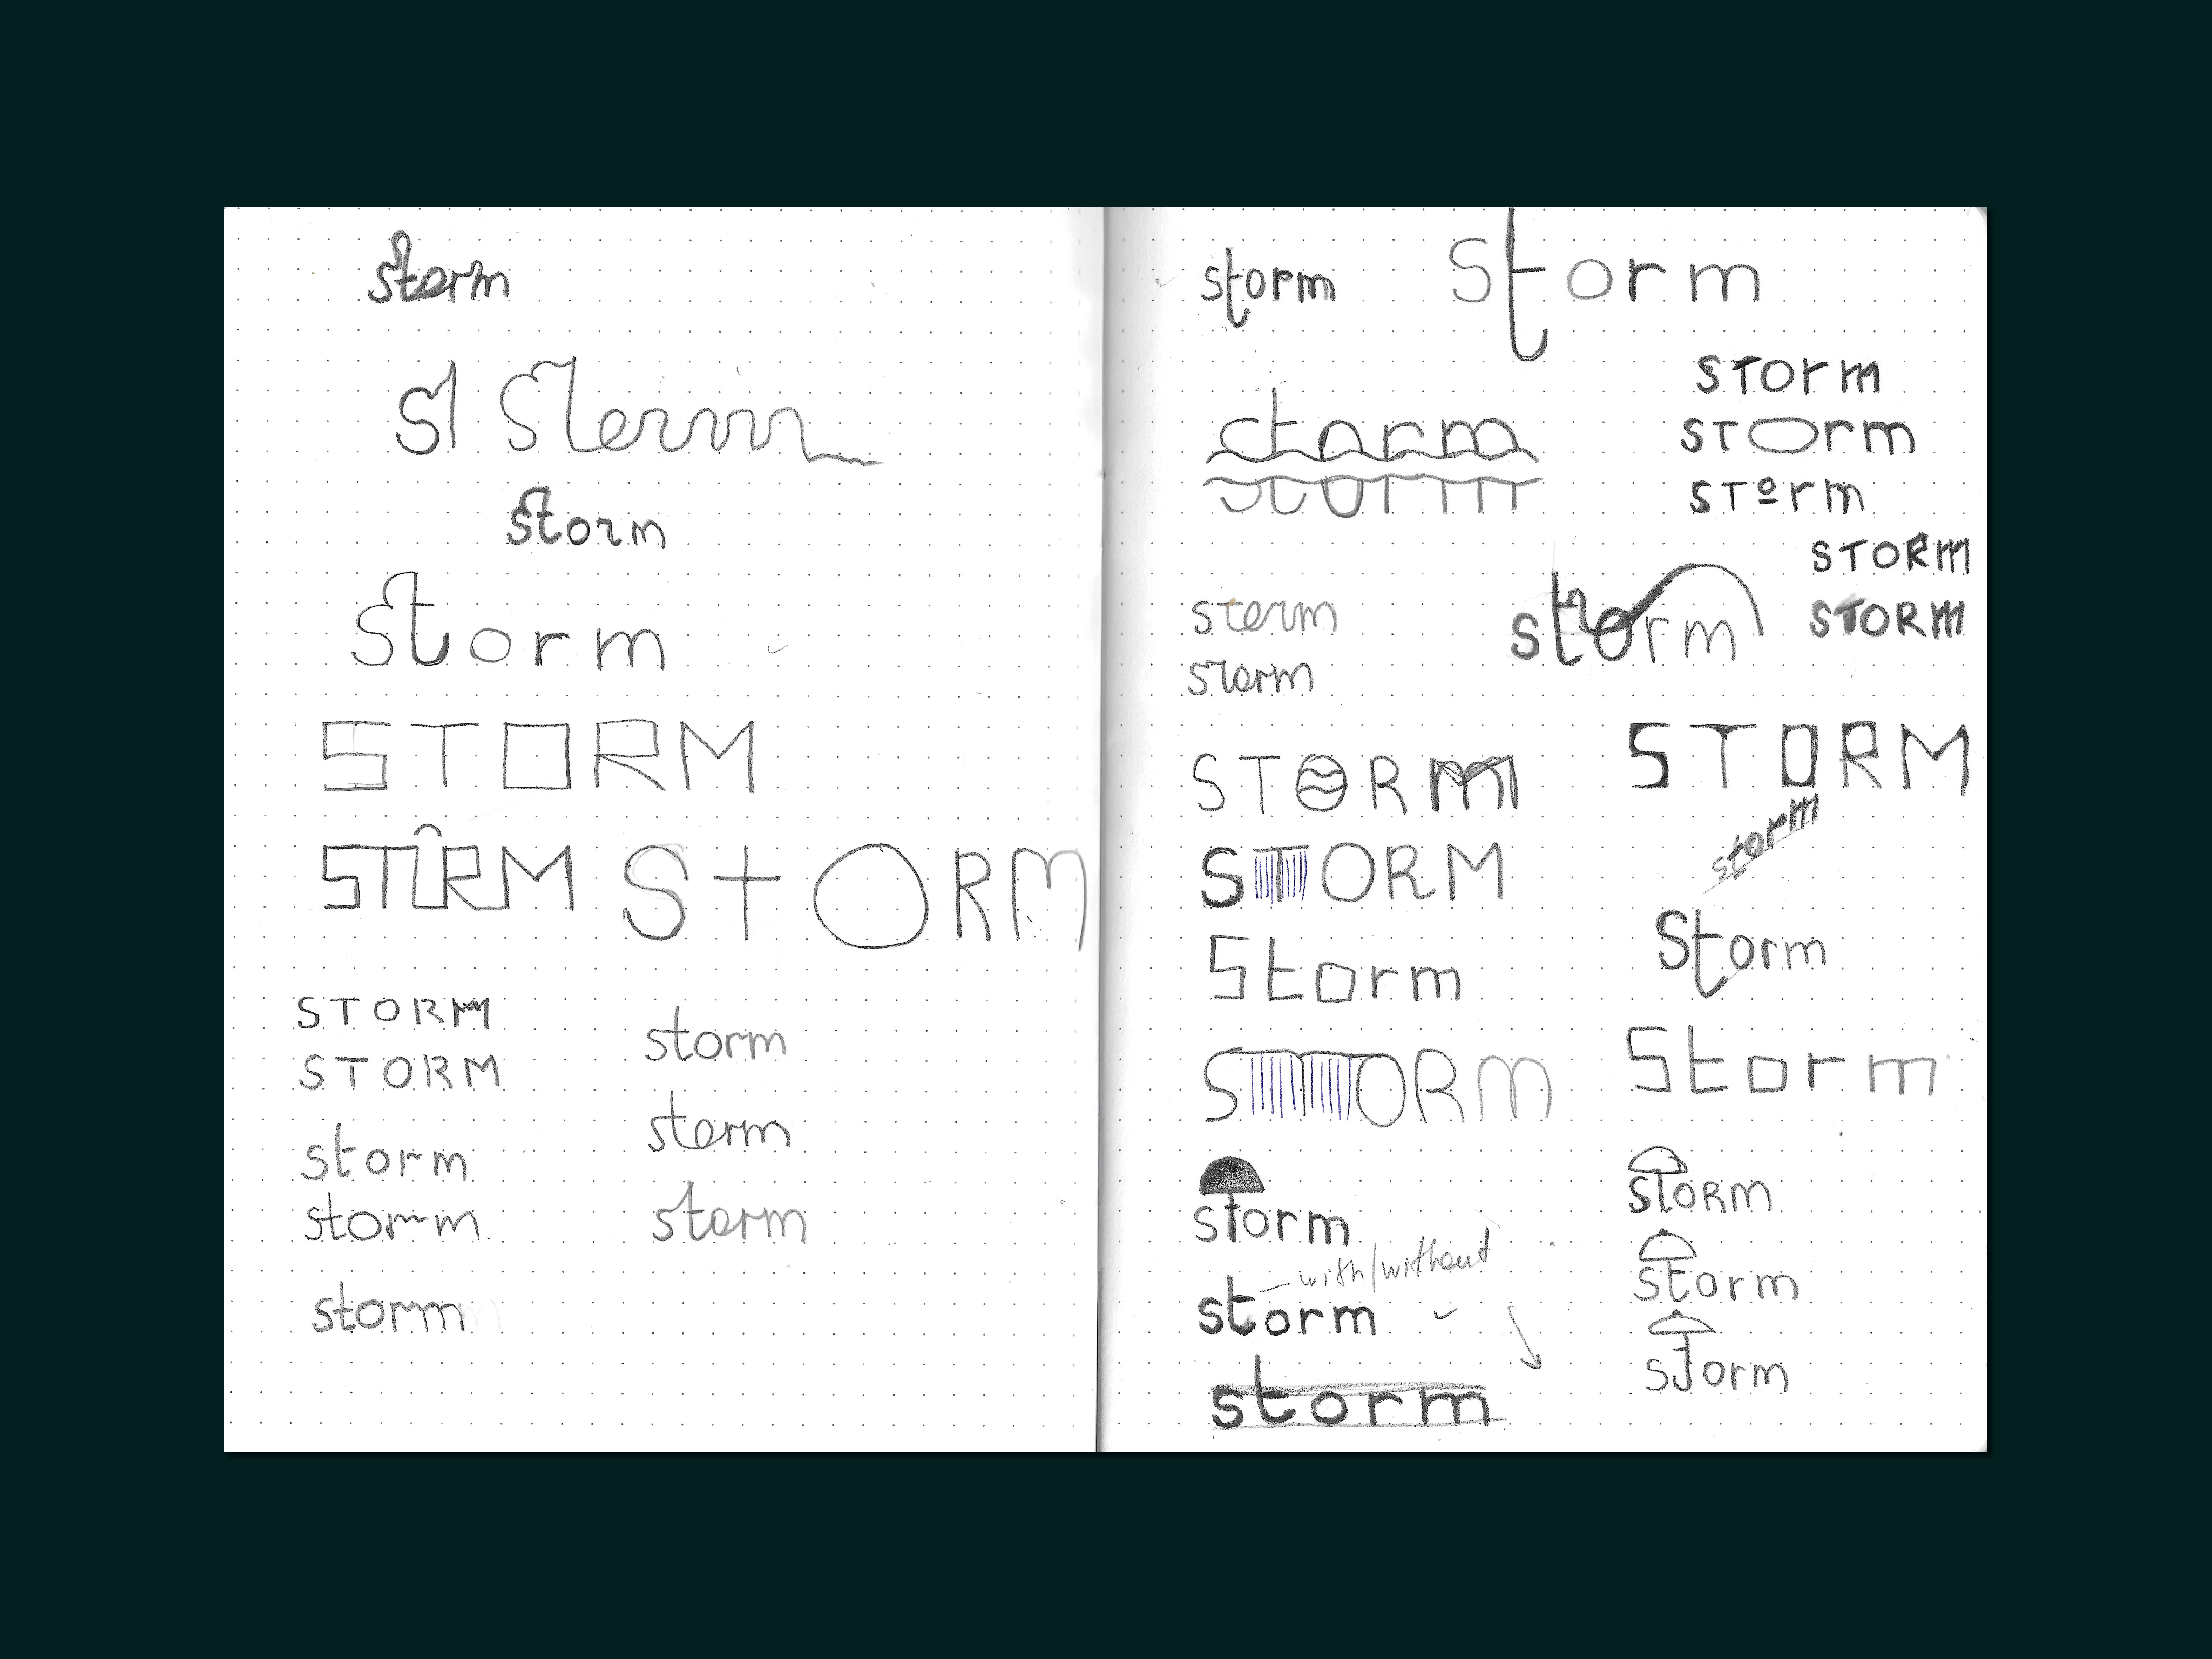 storm
st storm
storm
storm
STORM
STORM STORM
STORM
STORM
storm
storm
storm
storm
storm
storm
storm storm
storm
storm
storm
storm
STORM
storm
STORM
storm
storm
STORM
STORM
storm
STORM
storm
storm
storm
STORM
storm
storm
with/without
storm
storm
STORM
storm
storm